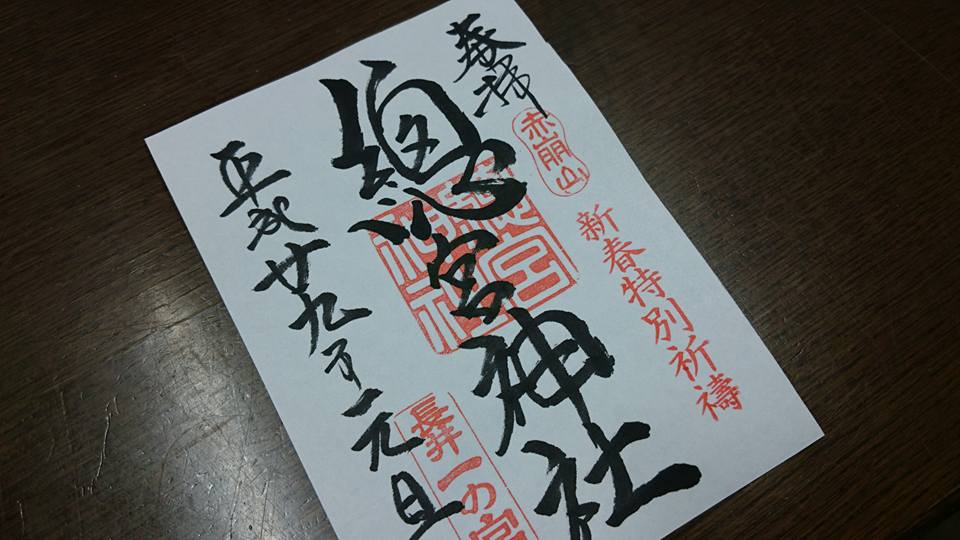 奉拝
赤崩山
新春特別祈禱
總宮神社
總宮神社
平成廿九年元旦
長井一の宮